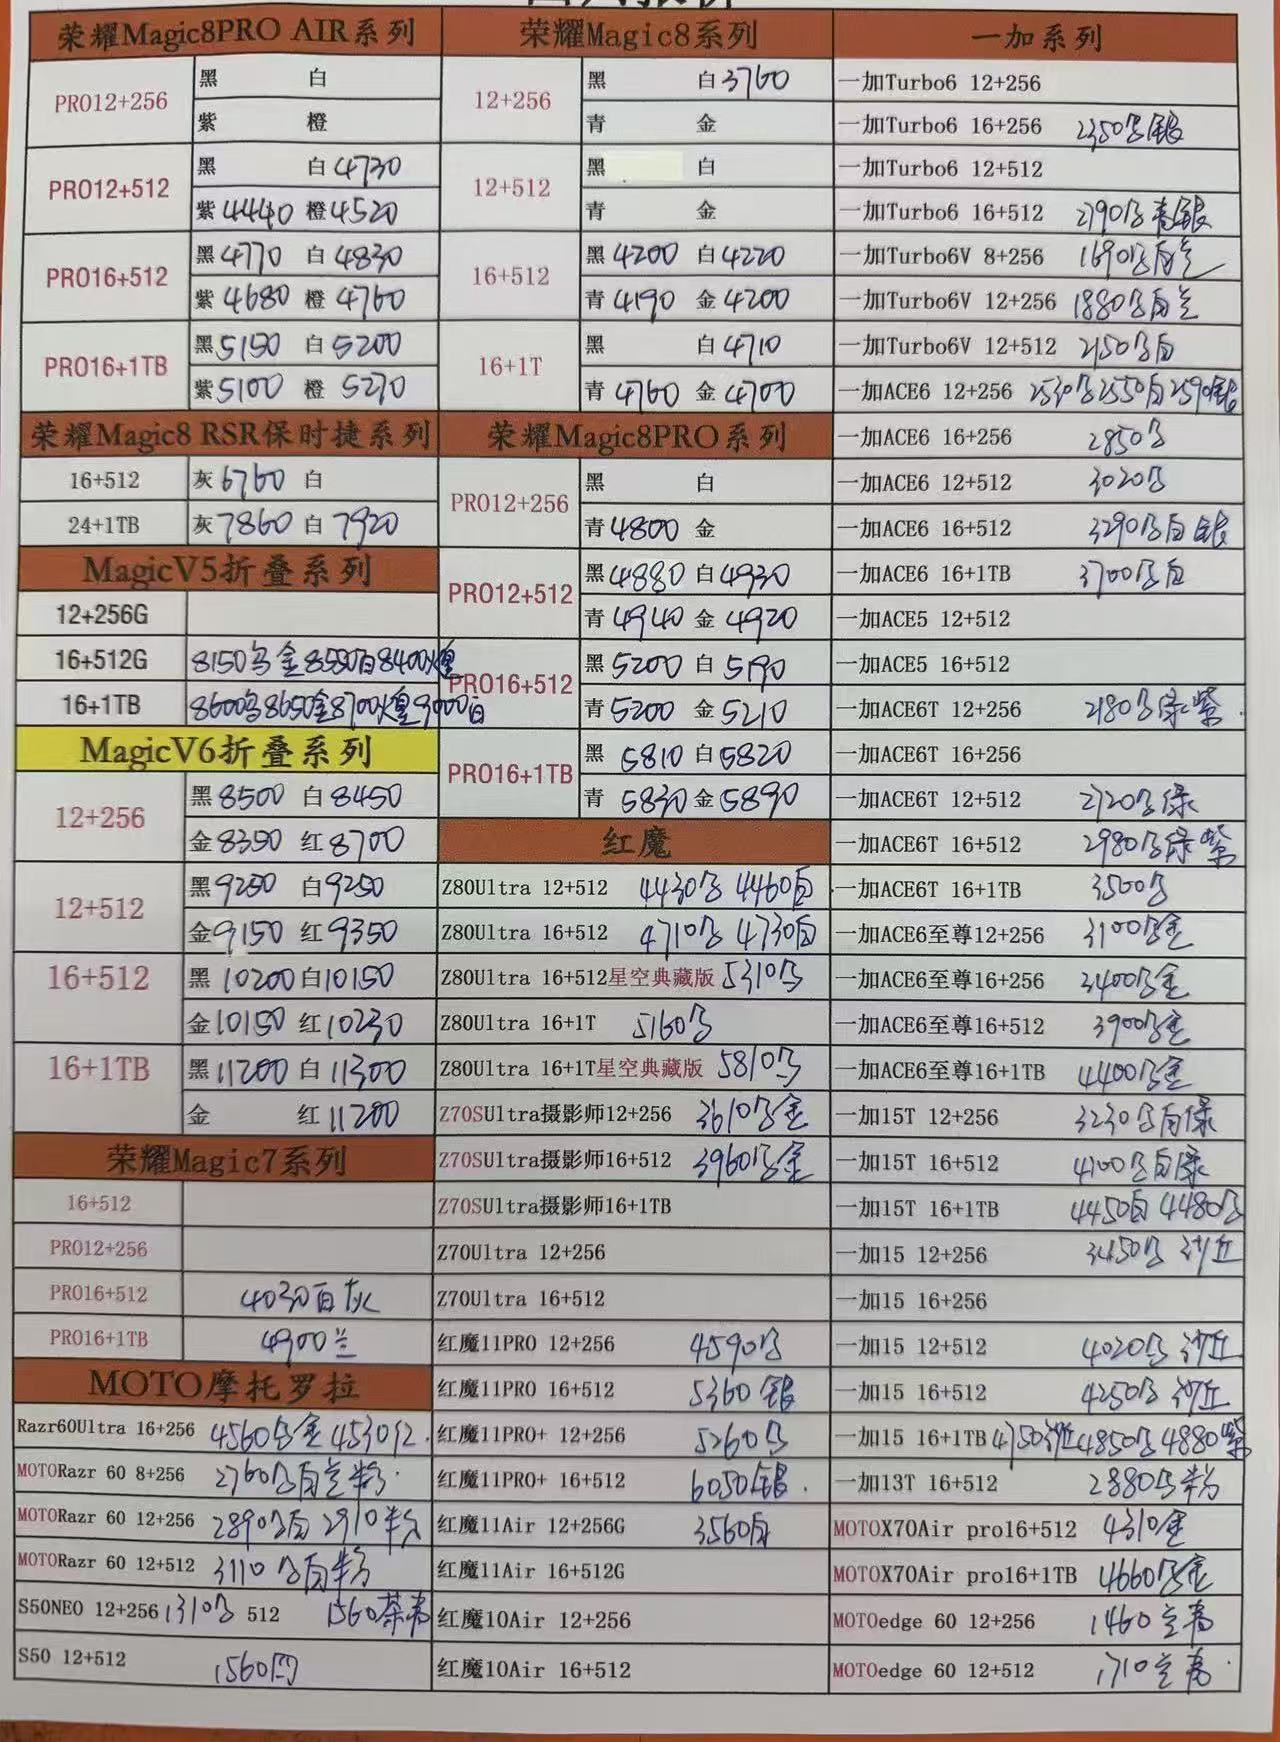 荣耀Magic8PRO AIR系列
PRO12+256
黑 白
紫 橙
PRO12+512
黑 白4730
紫4440 橙4520
PRO16+512
黑4770 白4830
紫4680 橙4760
PRO16+1TB
黑5150 白5200
紫5100 橙5270
荣耀Magic8 RSR保时捷系列
16+512 灰6760 白
24+1TB 灰7860 白7920
MagicV5折叠系列
12+256G
16+512G 8150乌金8550白8400火皇
16+1TB 8600乌8650金8700火皇9000白
MagicV6折叠系列
12+256
黑8500 白8450
金8350 红8700
12+512
黑9250 白9250
金9150 红9350
16+512
黑10200 白10150
金10150 红10230
16+1TB
黑11200 白11300
金 红11200
荣耀Magic7系列
16+512
PRO12+256
PRO16+512 4030白灰
PRO16+1TB 4900兰
MOTO摩托罗拉
Razr60Ultra 16+256 4560乌金 4530红
MOTORazr 60 8+256 2760乌白兰粉
MOTORazr 60 12+256 2890乌白 2910粉
MOTORazr 60 12+512 3110乌白粉
S50NEO 12+256 1310乌 512 1560茶青
S50 12+512 1560
荣耀Magic8系列
12+256
黑 白3760
青 金
12+512
黑 白
青 金
16+512
黑4200 白4220
青4190 金4200
16+1T
黑 白4710
青4760 金4700
荣耀Magic8PRO系列
PRO12+256
黑 白
青4800 金
PRO12+512
黑4880 白4930
青4940 金4920
PRO16+512
黑5200 白5190
青5200 金5210
PRO16+1TB
黑5810 白5820
青5830 金5890
红魔
Z80Ultra 12+512 4430乌 4460白
Z80Ultra 16+512 4710乌 4730白
Z80Ultra 16+512星空典藏版 5310乌
Z80Ultra 16+1T 5160乌
Z80Ultra 16+1T星空典藏版 5810乌
Z70SUltra摄影师12+256 3610乌金
Z70SUltra摄影师16+512 3960乌金
Z70SUltra摄影师16+1TB
Z70Ultra 12+256
Z70Ultra 16+512
红魔11PRO 12+256 4590乌
红魔11PRO 16+512 5360银
红魔11PRO+ 12+256 5260乌
红魔11PRO+ 16+512 6050银
红魔11Air 12+256G 3560白
红魔11Air 16+512G
红魔10Air 12+256
红魔10Air 16+512
一加系列
一加Turbo6 12+256
一加Turbo6 16+256 2350乌银
一加Turbo6 12+512
一加Turbo6 16+512 2790乌青银
一加Turbo6V 8+256 1690乌白兰
一加Turbo6V 12+256 1880乌白兰
一加Turbo6V 12+512 2150乌白
一加ACE6 12+256 2530乌2550白2590银
一加ACE6 16+256 2850乌
一加ACE6 12+512 3020乌
一加ACE6 16+512 3290乌白银
一加ACE6 16+1TB 3700乌白
一加ACE5 12+512
一加ACE5 16+512
一加ACE6T 12+256 2180乌绿紫
一加ACE6T 16+256
一加ACE6T 12+512 2720乌绿
一加ACE6T 16+512 2980乌绿紫
一加ACE6T 16+1TB 3500乌
一加ACE6至尊12+256 3100乌金
一加ACE6至尊16+256 3400乌金
一加ACE6至尊16+512 3900乌金
一加ACE6至尊16+1TB 4400乌金
一加15T 12+256 3230乌白绿
一加15T 16+512 4100乌白绿
一加15T 16+1TB 4450白 4480乌
一加15 12+256 3450乌 沙丘
一加15 16+256
一加15 12+512 4020乌 沙丘
一加15 16+512 4250乌 沙丘
一加15 16+1TB 4750沙丘4850乌4880紫
一加13T 16+512 2880乌粉
MOTOX70Air pro16+512 4310金
MOTOX70Air pro16+1TB 4660乌金
MOTOedge 60 12+256 1460兰青
MOTOedge 60 12+512 1710兰青